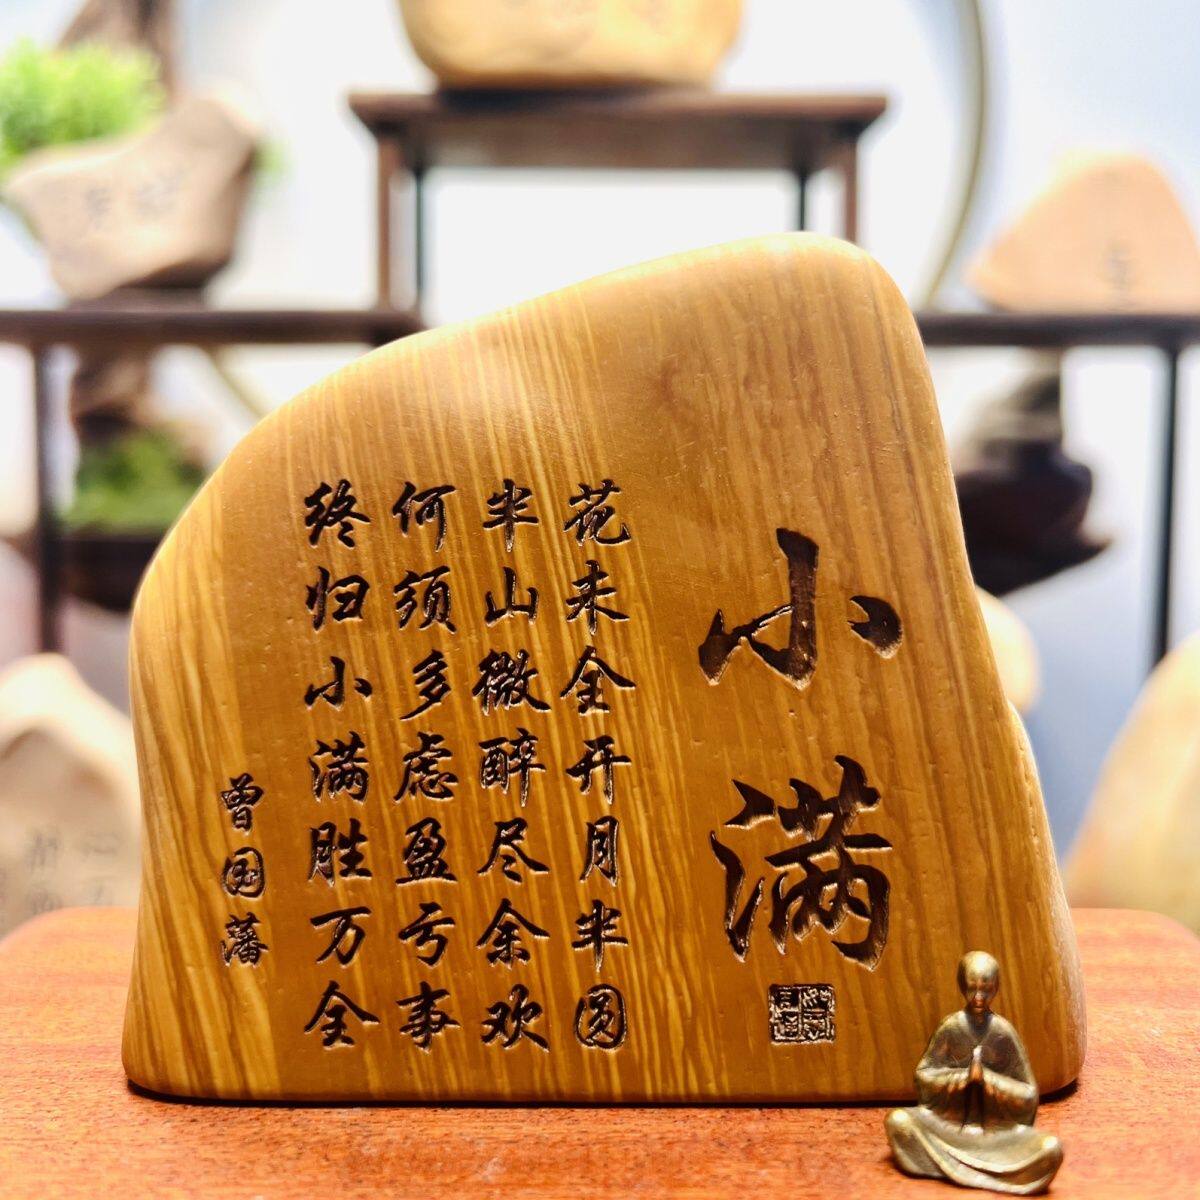 小满
花未全开月半圆
半山微醉尽余欢
何须多虑盈亏事
终归小满胜万全
曾国藩